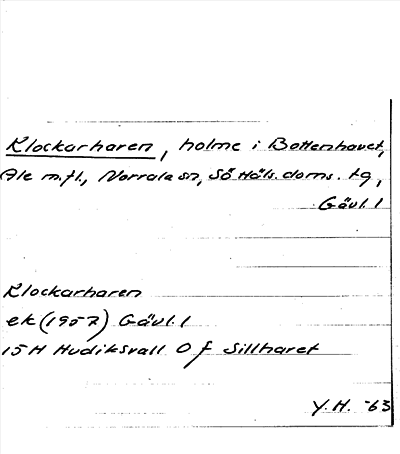 Klockarharen, holme i Bottenhavet,
Ale m.fl., Norrala sn, Sö Häls. doms. tg,
Gävl. l
Klockarharen
ek (1957) Gävl. l
15 H Hudiksvall 0 f Sillharet
Y.H. -63